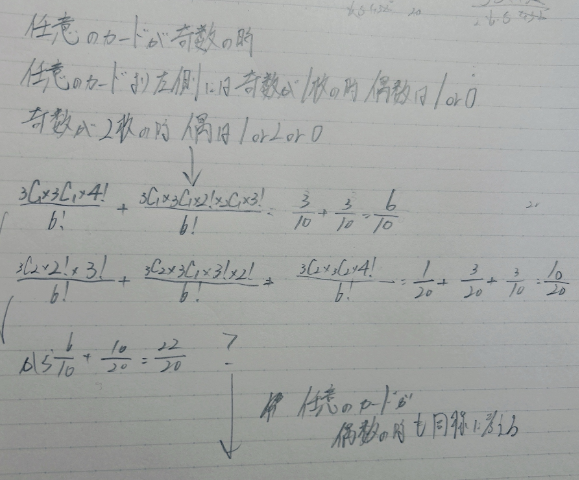 任意のカードが奇数の時
任意のカードより左側には奇数が1枚の時 偶数は 1 or 0
奇数が2枚の時 偶は 1 or 2 or 0
3C1×3C1×4!/6! + 3C1×3C1×2!×2C1×3!/6! = 3/10 + 3/10 = 6/10
3C2×2!×3!/6! + 3C2×3C1×3!×2!/6! + 3C2×3C2×4!/6! = 1/20 + 3/20 + 3/10 = 10/20
6/10 + 10/20 = 22/20 ?
任意のカードが
偶数の時も同様に